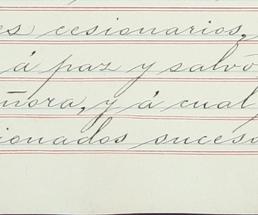 es cesionarios,
á paz y salvo
ñora, y á cual
ionados suceso